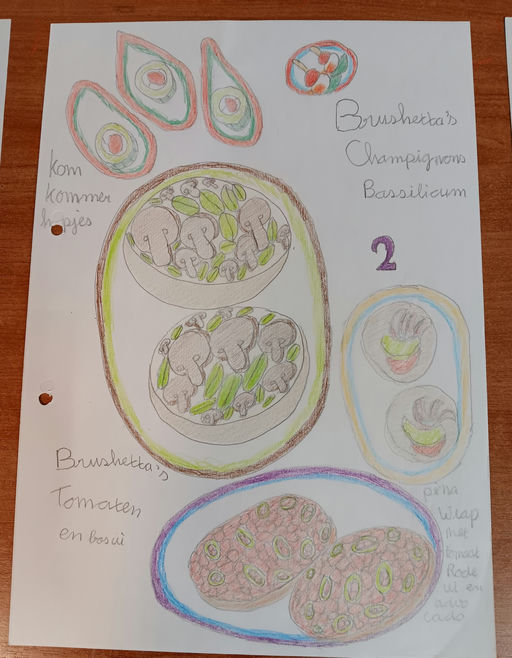 Brushetta's
Champignons
Bassilicum
kom
kommer
hapjes
2
Brushetta's
Tomaten
en bosui
pitta
Wrap
Met
tomaat
Rode
ui en
avo
cado